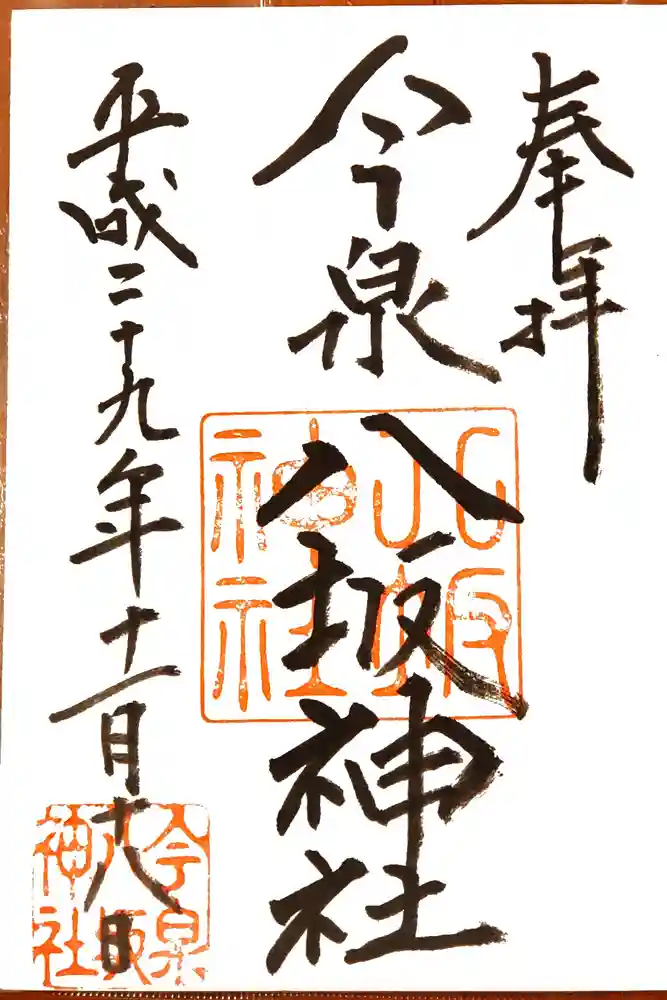 奉拝
今泉八坂神社
八坂神社
平成二十九年十一月十八日
今泉八坂神社